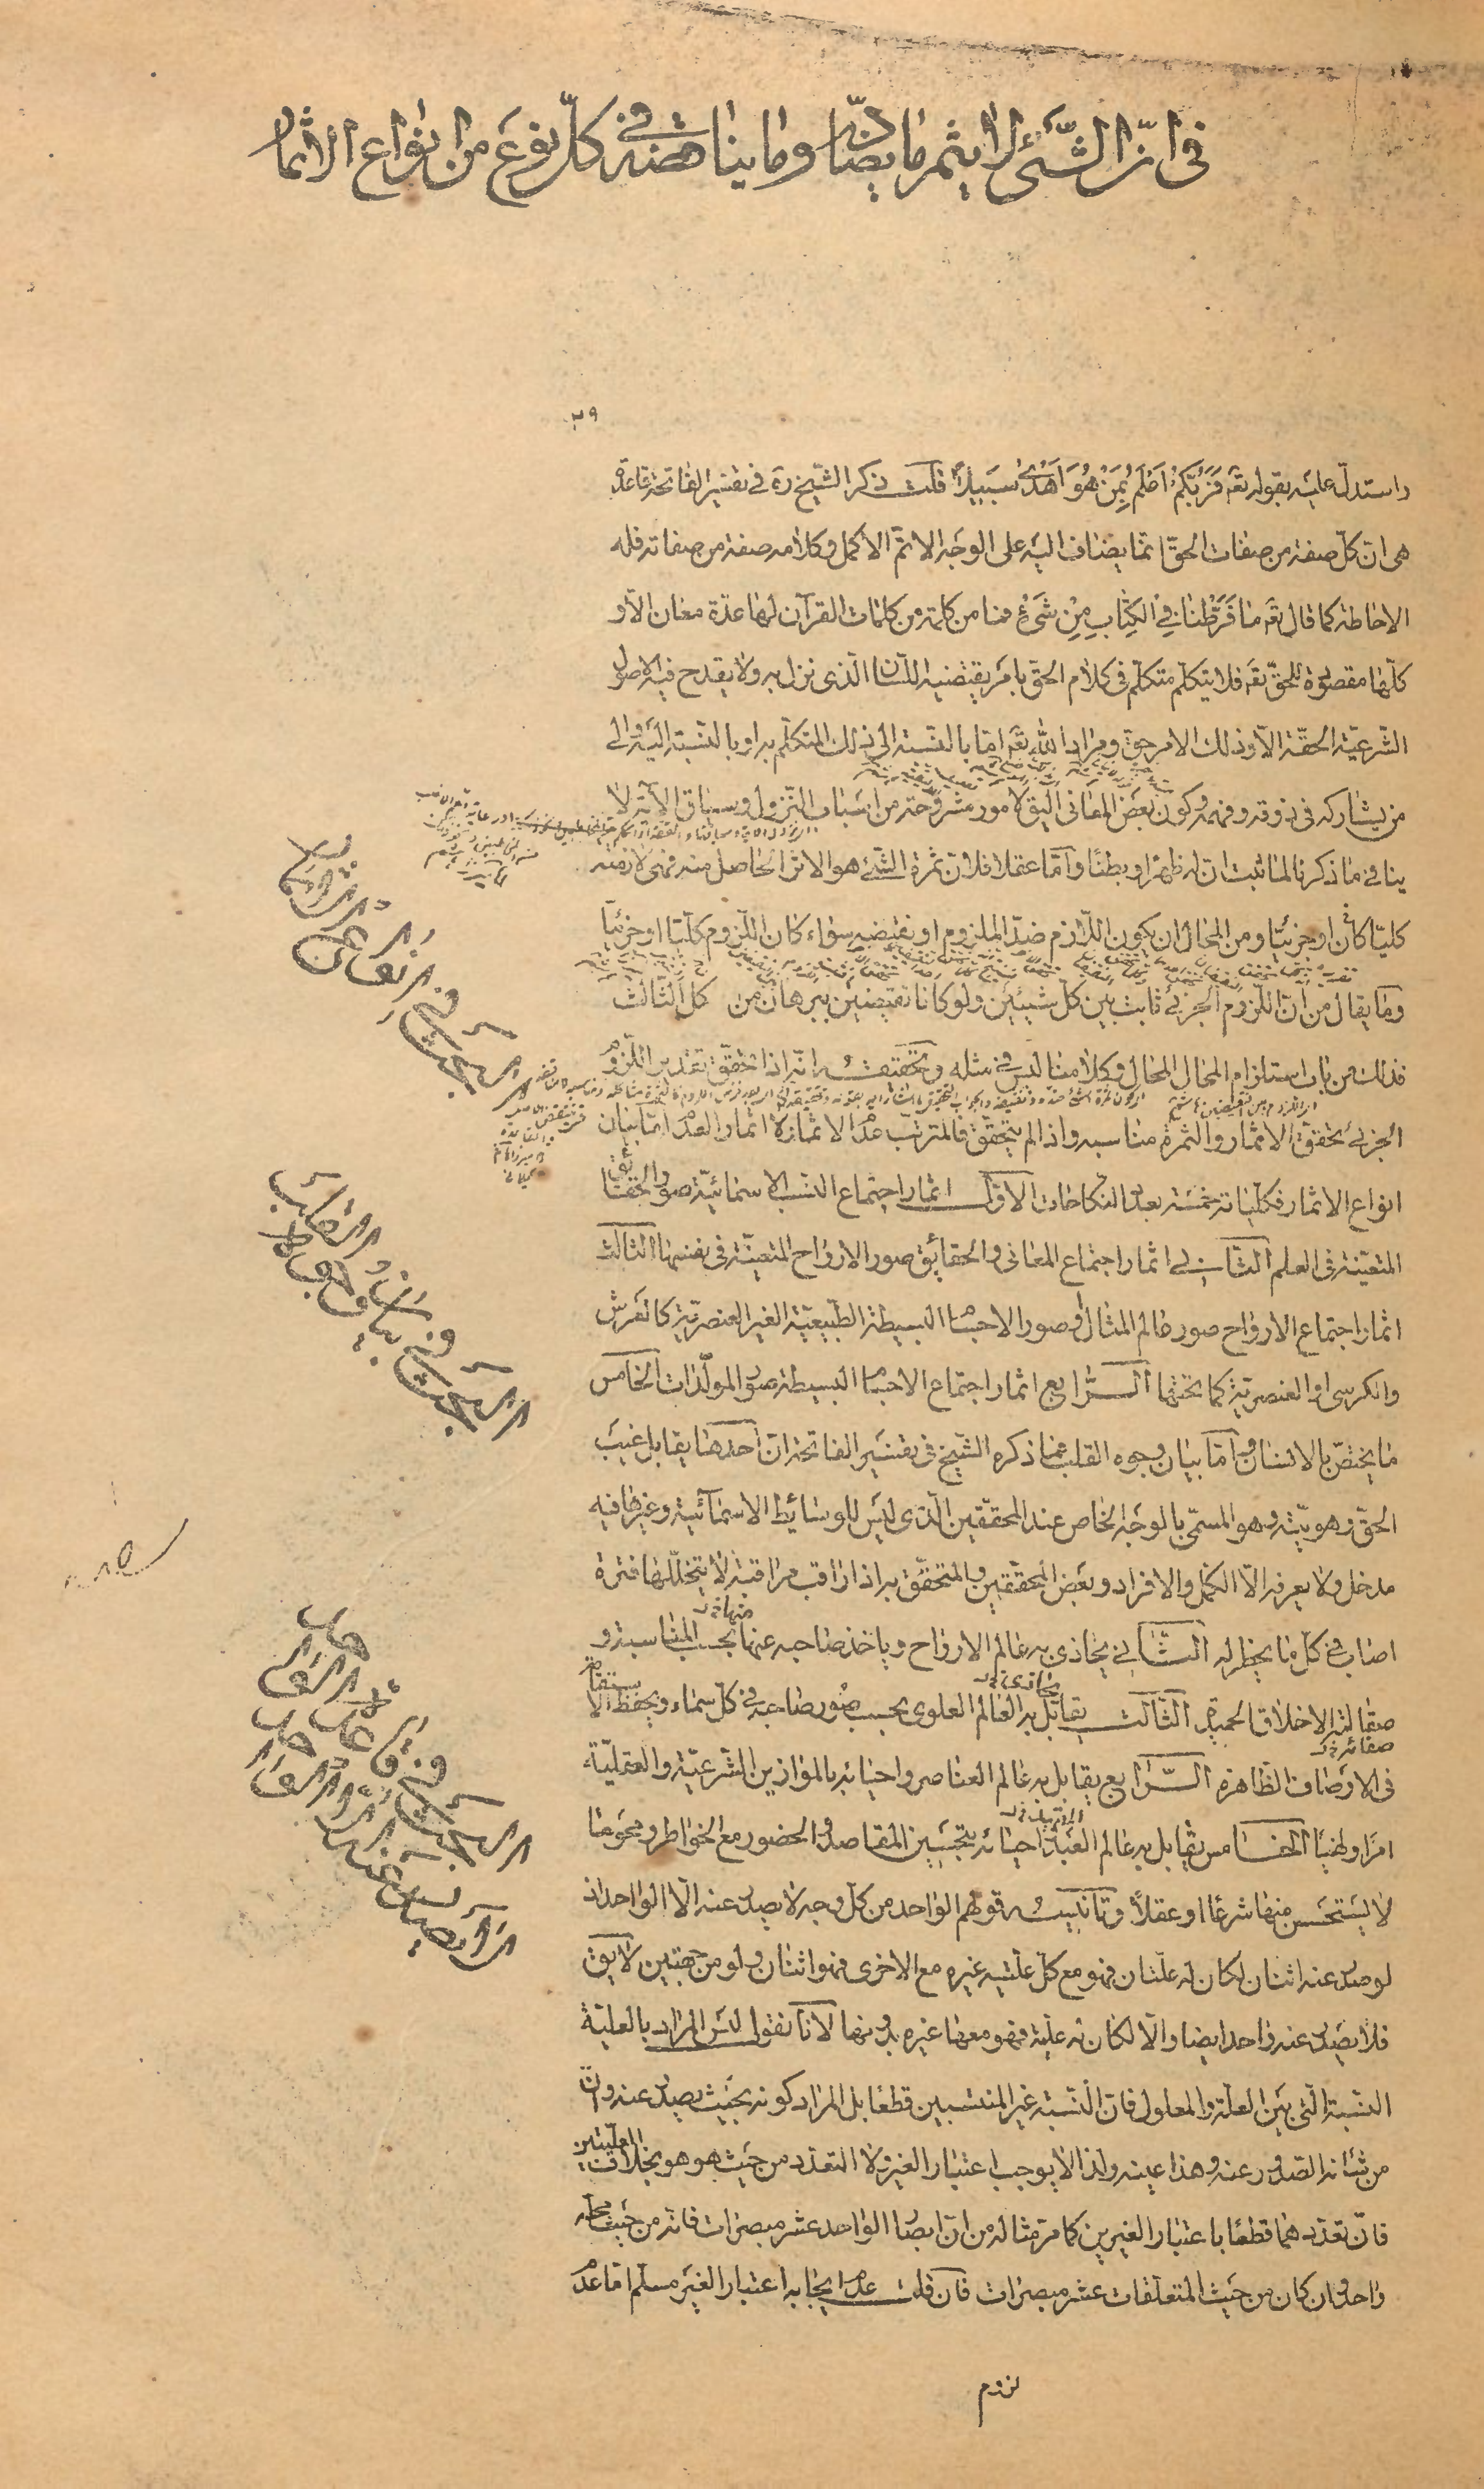 فى انّ الشّئ لا يثمر ما يضادّه وما يناقضه فى كلّ نوع من انواع الاثمار
٢٩
واستدلّ عليه بقوله تعه فَرَبُّكُمْ اَعْلَمُ بِمَنْ هُوَ اَهْدىٰ سَبيلاً قلت ذكر الشّيخ ره فى تفسير الفاتحة قاعدة
هى انّ كلّ صفة من صفات الحقّ انّما يضاف اليه على الوجه الاتمّ الاكمل وكلامه صفة من صفاته فله
الاحاطة كما قال تعه مٰا فَرَّطْنٰا فِى الْكِتٰابِ مِنْ شَىْءٍ فما من كلمة من كلمات القرآن لها عدّة معان الاّ و
كلّها مقصودة للحقّ تعه فلا يتكلّم متكلّم فى كلام الحقّ بامر يقتضيه اللّسان الّذى نزل به ولا يقدح فيه الاصول
الشّرعيّة الحقّة الاّ وذلك الامر حق ومراد الله تعه امّا بالنّسبة الى ذلك المتكلّم به او بالنّسبة اليه والى
من يشاركه فى ذوقه وفهمه وكون بعض المعانى اليق لامور مشروحة من اسباب النّزول وسياق الآية لا
ينافى ما ذكرنا لما ثبت انّ له ظهرا وبطنا وامّا عقلا فلانّ ثمرة الشّئ هو الاثر الحاصل منه فهى لازمته
كليّا كان او جزئيّا ومن المحال ان يكون اللّازم ضدّ الملزوم او نقيضه سواء كان اللّزوم كلّيّا او جزئيّا
وما يقال من انّ اللّزوم الجزئى ثابت بين كلّ شيئين ولو كانا نقيضين ببرهان من كل الثّالث
فذلك من باب استلزام المحال المحال وكلامنا ليس فى مثله وتحقيقه انّه اذا تحقّق تقدير اللّزوم
الجزئى تحقّق الاثمار والثمرة مناسبه واذا لم يتحقّق فالمترتّب عدم الاثمار لا اثمار العدم امّا بيان
انواع الاثمار فكلّياته خمسة بعدد النّكاحات الاوّل اثمار اجتماع النّسب الاسمائيّة صور الحقائق
المتعيّنة فى العلم الثّانى اثمار اجتماع المعانى والحقائق صور الارواح المتعيّنة فى نفسها الثّالث
اثمار اجتماع الارواح صور عالم المثال او صور الاجسام البسيطة الطّبيعيّة الغير العنصريّة كالعرش
والكرسى او العنصريّة كما تحتها الرّابع اثمار اجتماع الاجسام البسيطة صور المولّدات الخامس
ما يختصّ بالانسان وامّا بيان وجوه القلب فما ذكره الشّيخ فى تفسير الفاتحة انّ احدها يقابل غيب
الحقّ وهويّته وهو المسمّى بالوجه الخاص عند المحقّقين الّذى ليس للوسائط الاسمآئية وغيرها فيه
مدخل ولا يعرفه الاّ الكمّل والافراد وبعض المحقّقين والمتحقّق به اذا راقب مراقبة لا يتخلّلها فترة
اصاب فى كلّ ما يخطر له الثّانى يحاذى به عالم الارواح وياخذ صاحبه عنها بحسب المناسبة و
صقالته الاخلاق الحميدة الثّالث يقابل به العالم العلوى بحسب صور صاحبه فى كلّ سماء ويحفظ الاستقامة
فى الاوصاف الظّاهرة الرّابع يقابل به عالم العناصر واحيائه بالموازين الشّرعيّة والعقليّة
امرا ونهيا الخامس يقابل به عالم العبادة احيائه بتحسين المقاصد والحضور مع الخواطر ومحو ما
لا يستحسن منها شرعا او عقلا وتانيسه قولهم الواحد من كلّ وجه لا يصدر عنه الاّ الواحد اذ
لو صدر عنه اثنان لكان له علّتان فهو مع كلّ علّيّة غيره مع الاخرى فهو اثنان ولو من جهتين لا يق
فلا يصدر عنه واحد ايضا والاّ لكان له علّيّة فهو معها غيره بدونها لانّا نقول ليس المراد بالعلّيّة
النّسبة الّتى بين العلّة والمعلول فانّ النّسبة غير المنتسبين قطعا بل المراد كونه بحيث يصدر عنه وانّ
من شانه الصّدور عنه وهذا عينه ولذا لا يوجب اعتبار الغير ولا التعدّد من حيث هو هو بخلاف العلّيّتين
فانّ تعدّدهما قطعا باعتبار الغيرين كما مرّ مثاله من انّ ابصار الواحد عشر مبصرات فانّه من حيث محلّه
واحد وان كان من حيث المتعلّقات عشر مبصرات فان قلت عدم ايجابه اعتبار الغير مسلّم امّا عدم
لزوم
البحث فى انواع الاثمار
البحث فى بيان وجوه القلب
البحث فى قاعدة الواحد لا يصدر عنه الّا الواحد